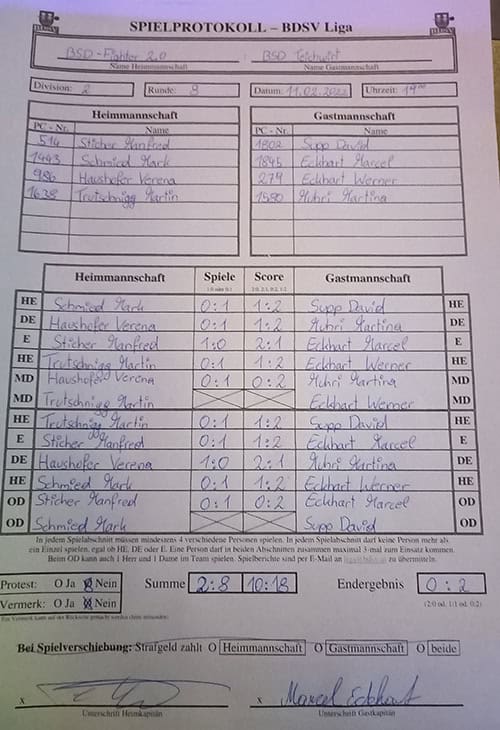 SPIELPROTOKOLL – BDSV Liga
BSD-Fighter 2.0 : BSD Teichwirt
Name Heimmannschaft Name Gastmannschaft
Division: 2 Runde: 8 Datum: 11.02.2022 Uhrzeit: 19⁰⁰
Heimmannschaft Gastmannschaft
PC - Nr. Name PC - Nr. Name
514 Sticher Manfred 1802 Supp David
1443 Schmied Mark 1845 Eckhart Marcel
986 Haushofer Verena 279 Eckhart Werner
1638 Trutschnigg Martin 1580 Muhri Martina
Heimmannschaft Spiele Score Gastmannschaft
1:0 oder 0:1 2:0, 2:1, 0:2, 1:2
HE Schmied Mark 0:1 1:2 Supp David HE
DE Haushofer Verena 0:1 1:2 Muhri Martina DE
E Sticher Manfred 1:0 2:1 Eckhart Marcel E
HE Trutschnigg Martin 0:1 1:2 Eckhart Werner HE
MD Haushofer Verena 0:1 0:2 Muhri Martina MD
MD Trutschnigg Martin Eckhart Werner MD
HE Trutschnigg Martin 0:1 1:2 Supp David HE
E Sticher Manfred 0:1 1:2 Eckhart Marcel E
DE Haushofer Verena 1:0 2:1 Muhri Martina DE
HE Schmied Mark 0:1 1:2 Eckhart Werner HE
OD Sticher Manfred 0:1 0:2 Eckhart Marcel OD
OD Schmied Mark Supp David OD
In jedem Spielabschnitt müssen mindestens 4 verschiedene Personen spielen. In jedem Spielabschnitt darf keine Person mehr als
ein Einzel spielen, egal ob HE, DE oder E. Eine Person darf in beiden Abschnitten zusammen maximal 3-mal zum Einsatz kommen.
Beim OD kann auch 1 Herr und 1 Dame im Team spielen. Spielberichte sind per E-Mail an zu übermitteln.
Protest: O Ja O Nein Summe 2:8 10:18 Endergebnis 0:2
Vermerk: O Ja O Nein (2:0 od. 1:1 od. 0:2)
Ein Vermerk kann auf der Rückseite gemacht werden
Bei Spielverschiebung: Strafgeld zahlt O Heimmannschaft O Gastmannschaft O beide
x x Marcel Eckhart
Unterschrift Heimkapitän Unterschrift Gastkapitän